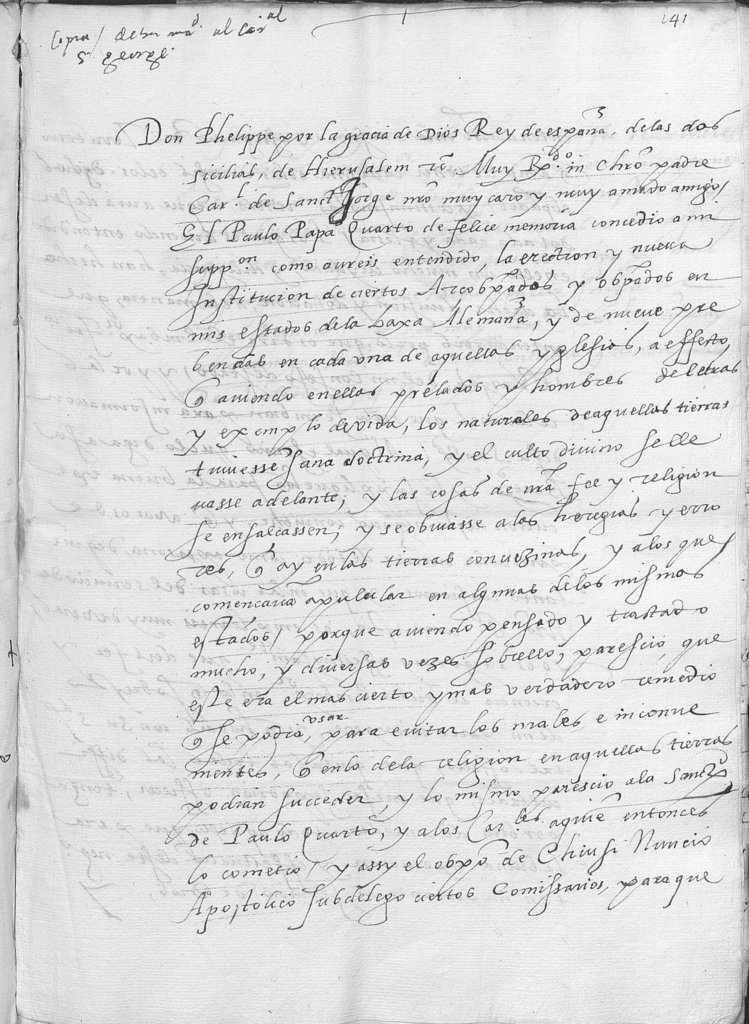 141
Copia / de su mad. al Caral
S. george.
Don Phelippe por la gracia de Dios Rey de españa, de las dos
Sicilias, de Hierusalem &c. Muy Rdo. in Chro padre
Carl. de Sanct Jorge nro muy caro y muy amado amigo,
El Paulo Papa Quarto de felice memoria concedio a mi
suppon. como aureis entendido, la erection y nueva
Institucion de ciertos Arcobpados, y obpados en
mis estados de la baxa Alemaña, y de nueve pre
bendas en cada una de aquellas yglesias, a effecto
q aviendo en ellas prelados y hombres de letras
y exemplo de vida, los naturales de aquellas tierras
tuviessen sana doctrina, y el culto divino se lle
vasse adelante, y las cosas de nra fee y religion
se ensalcassen, y se obviasse a las heregias y erro
res, q ay en las tierras convezinas, y a los que
comencavan a pulular en algunas de los mismos
estados, porque aviendo pensado y tractado
mucho, y diversas vezes sobrello, parescio que
este era el mas cierto y mas verdadero remedio
q se podia usar, para evitar los males e inconve
nientes, q en lo de la religion en aquellas tierras
podian succeder, y lo mismo parescio a la Sanctd
de Paulo Quarto, y a los Carles. a quien entonces
lo cometio, y assy el obpo de Chiusi Nuncio
Apostolico subdelego ciertos Comissarios, para que